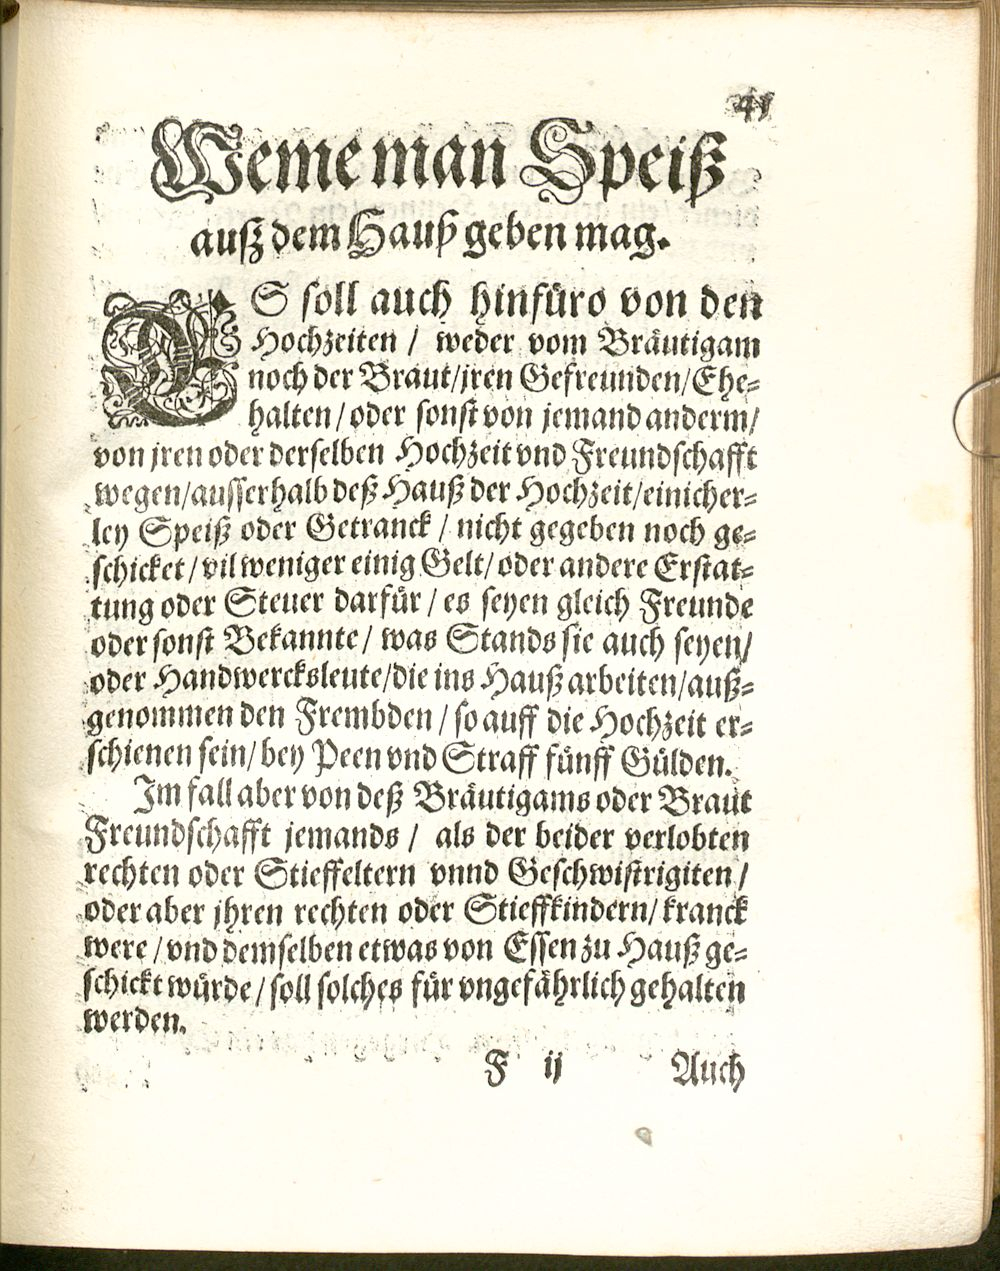 41
Weme man Speiß
auß dem Hauß geben mag.
ES soll auch hinfüro von den
Hochzeiten / weder vom Bräutigam
noch der Braut/jren Gefreunden/Ehe=
halten / oder sonst von jemand anderm/
von jren oder derselben Hochzeit vnd Freundschafft
wegen/ausserhalb deß Hauß der Hochzeit/einicher=
ley Speiß oder Getranck / nicht gegeben noch ge=
schicket / vil weniger einig Gelt/ oder andere Erstat=
tung oder Steuer darfür / es seyen gleich Freunde
oder sonst Bekannte / was Stands sie auch seyen/
oder Handwercksleute/die ins Hauß arbeiten/auß=
genommen den Frembden / so auff die Hochzeit er=
schienen sein/ bey Peen vnd Straff fünff Gülden.
Im fall aber von deß Bräutigams oder Braut
Freundschafft jemands / als der beider verlobten
rechten oder Stieffeltern vnnd Geschwistrigiten /
oder aber jhren rechten oder Stieffkindern/ kranck
were / vnd demselben etwas von Essen zu Hauß ge=
schickt würde / soll solches für vngefährlich gehalten
werden.
F ij Auch